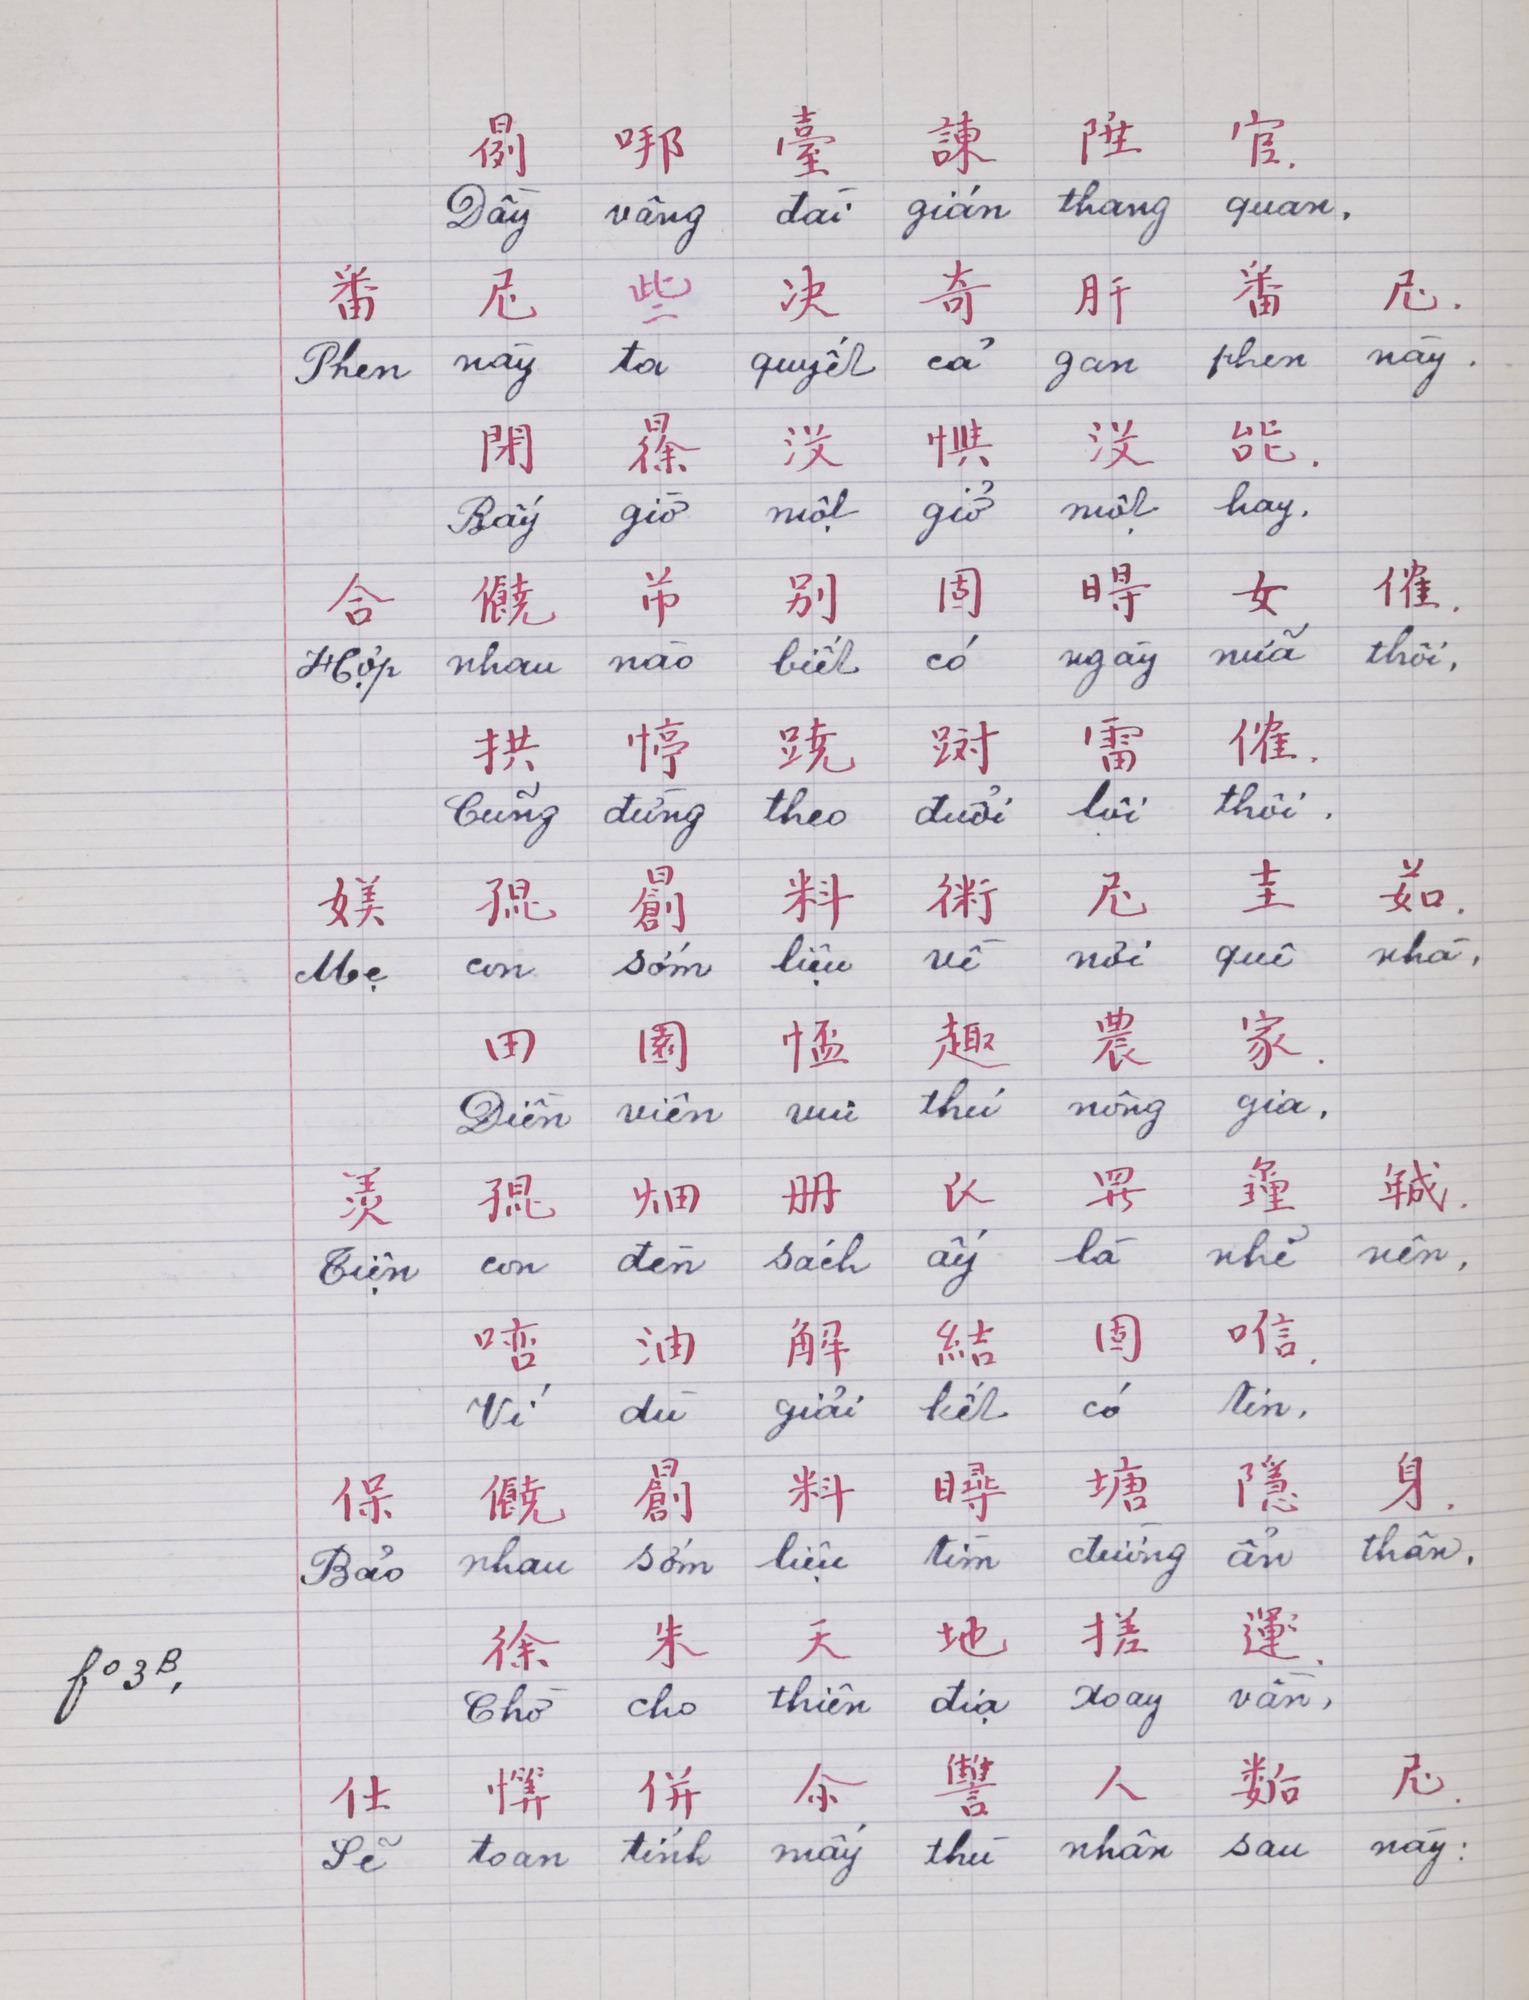 𠰺 哪 臺 諫 陞 官.
Dầy vâng đài gián thang quan,
番 尼 些 决 奇 肝 番 尼.
Phen này ta quyết cả gan phen này.
閉 𣇞 没 惧 没 能.
Bấy giờ một giở một hay.
合 僥 芇 别 固 𣈜 女 催.
Hợp nhau nào biết có ngày nữa thôi,
拱 停 蹺 𨃵 雷 催.
Cũng đừng theo đuổi lôi thôi.
媄 𡥵 𣌋 料 術 尼 圭 茹.
Mẹ con sớm liệu về nơi quê nhà,
田 園 𢝙 趣 農 家.
Điền viên vui thú nông gia,
羡 𡥵 畑 册 𧘇 𱺵 𨮑 𢧚.
Tiện con đèn sách ấy là nhẻ nên,
噾 油 解 結 固 信.
Ví dù giải kết có tin,
保 僥 𣌋 料 尋 塘 隱 身.
Bảo nhau sớm liệu tìm đường ẩn thân,
徐 朱 天 地 搓 運.
Chờ cho thiên địa xoay vần,
f° 3ᴮ,
仕 算 併 尒 讐 人 𡢐 尼.
Sẽ toan tính mấy thù nhân sau này: